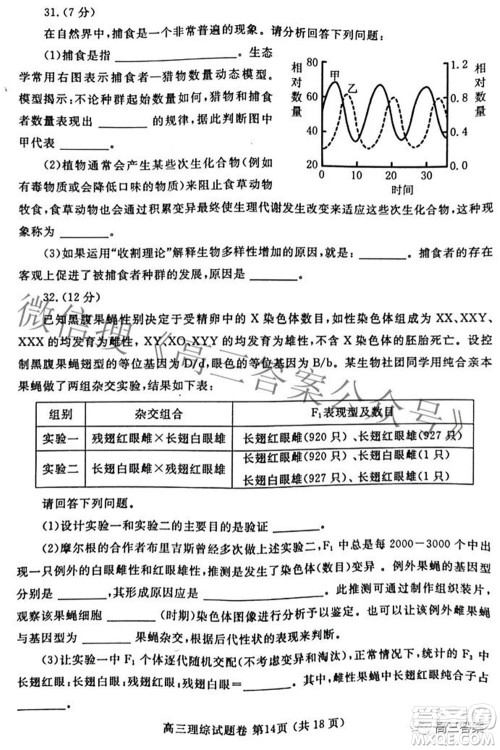 31.(7 分)
在自然界中，捕食是一个非常普遍的现象。请分析回答下列问题：
(1)捕食是指 ______。生态
学常用右图表示捕食者—猎物数量动态模型。
模型揭示：不论种群起始数量有何，猎物和捕食
者数量表现出 ______ 的规律，据此判断图中
甲代表 ______。
相对数量
80
60
40
20
甲
乙
1.2
0.8
0.4
0.0
相对数量
0
10
20
30
时间
(2)植物通常会产生某些次生化合物(例如
有毒物质或难以降低口味的物质)来阻止食草动物
牧食，食草动物也会最终使生理代谢发生改变来适应这些次生化合物，这种现
象称为 ______。
(3)如果运用“收割理论”解释生物多样性增加的原因，就是：______的存在
客观上促进了被捕食者种群的发展，其原因是 ______。
32.(12 分)
已知黑腹果蝇性别决定于受精卵中的 X 染色体数目，如性染色体为 XX、XXY、
XXX 的均发育为雌性，XY、XO、XYY 的均发育为雄性，YY、YO 的胚胎死亡。设控
制黑腹果蝇翅型的等位基因为 D/d，眼色的等位基因为 B/b。某生物社团同学用纯合亲本
果蝇做了两组杂交实验，结果如下表：
组别 杂交组合 F₁表现型及数目
实验一 残翅红眼雌×长翅白眼雄 长翅红眼雌(920 只)、长翅红眼雄(927 只)
实验二 长翅白眼雌×残翅红眼雄 长翅红眼雌(930 只)、长翅白眼雌(1 只)
长翅白眼雄(926 只)、长翅红眼雄(1 只)
请回答下列问题。
(1)设计实验一和实验二的主要目的是验证 ______。
(2)摩尔根的合作者布里吉斯发现上述实验二，F₁ 中总是每 2000－3000 个中出
现一只例外的白眼雌性和红眼雄性，推测是发生了染色体(数目)变异，例外果蝇的基因型
分别是 ______，其形成原因应是 ______。此推测可通过对例外个体制片，
观察该果蝇细胞 ______ (时期)染色体图像进行分析予以鉴定。也可让例外雌果蝇
与基因型为 ______ 果蝇杂交，根据后代性状的表现来判断。
(3)让实验一中 F₁ 个体连续随机交配(不考虑变异和淘汰)，所得 F₃ 果蝇中
长翅红眼雌：长翅红眼雄：长翅白眼雄= ______。
高三理综试题卷 第14页(共 18 页)
微信搜《高三答案公众号》
高三答案